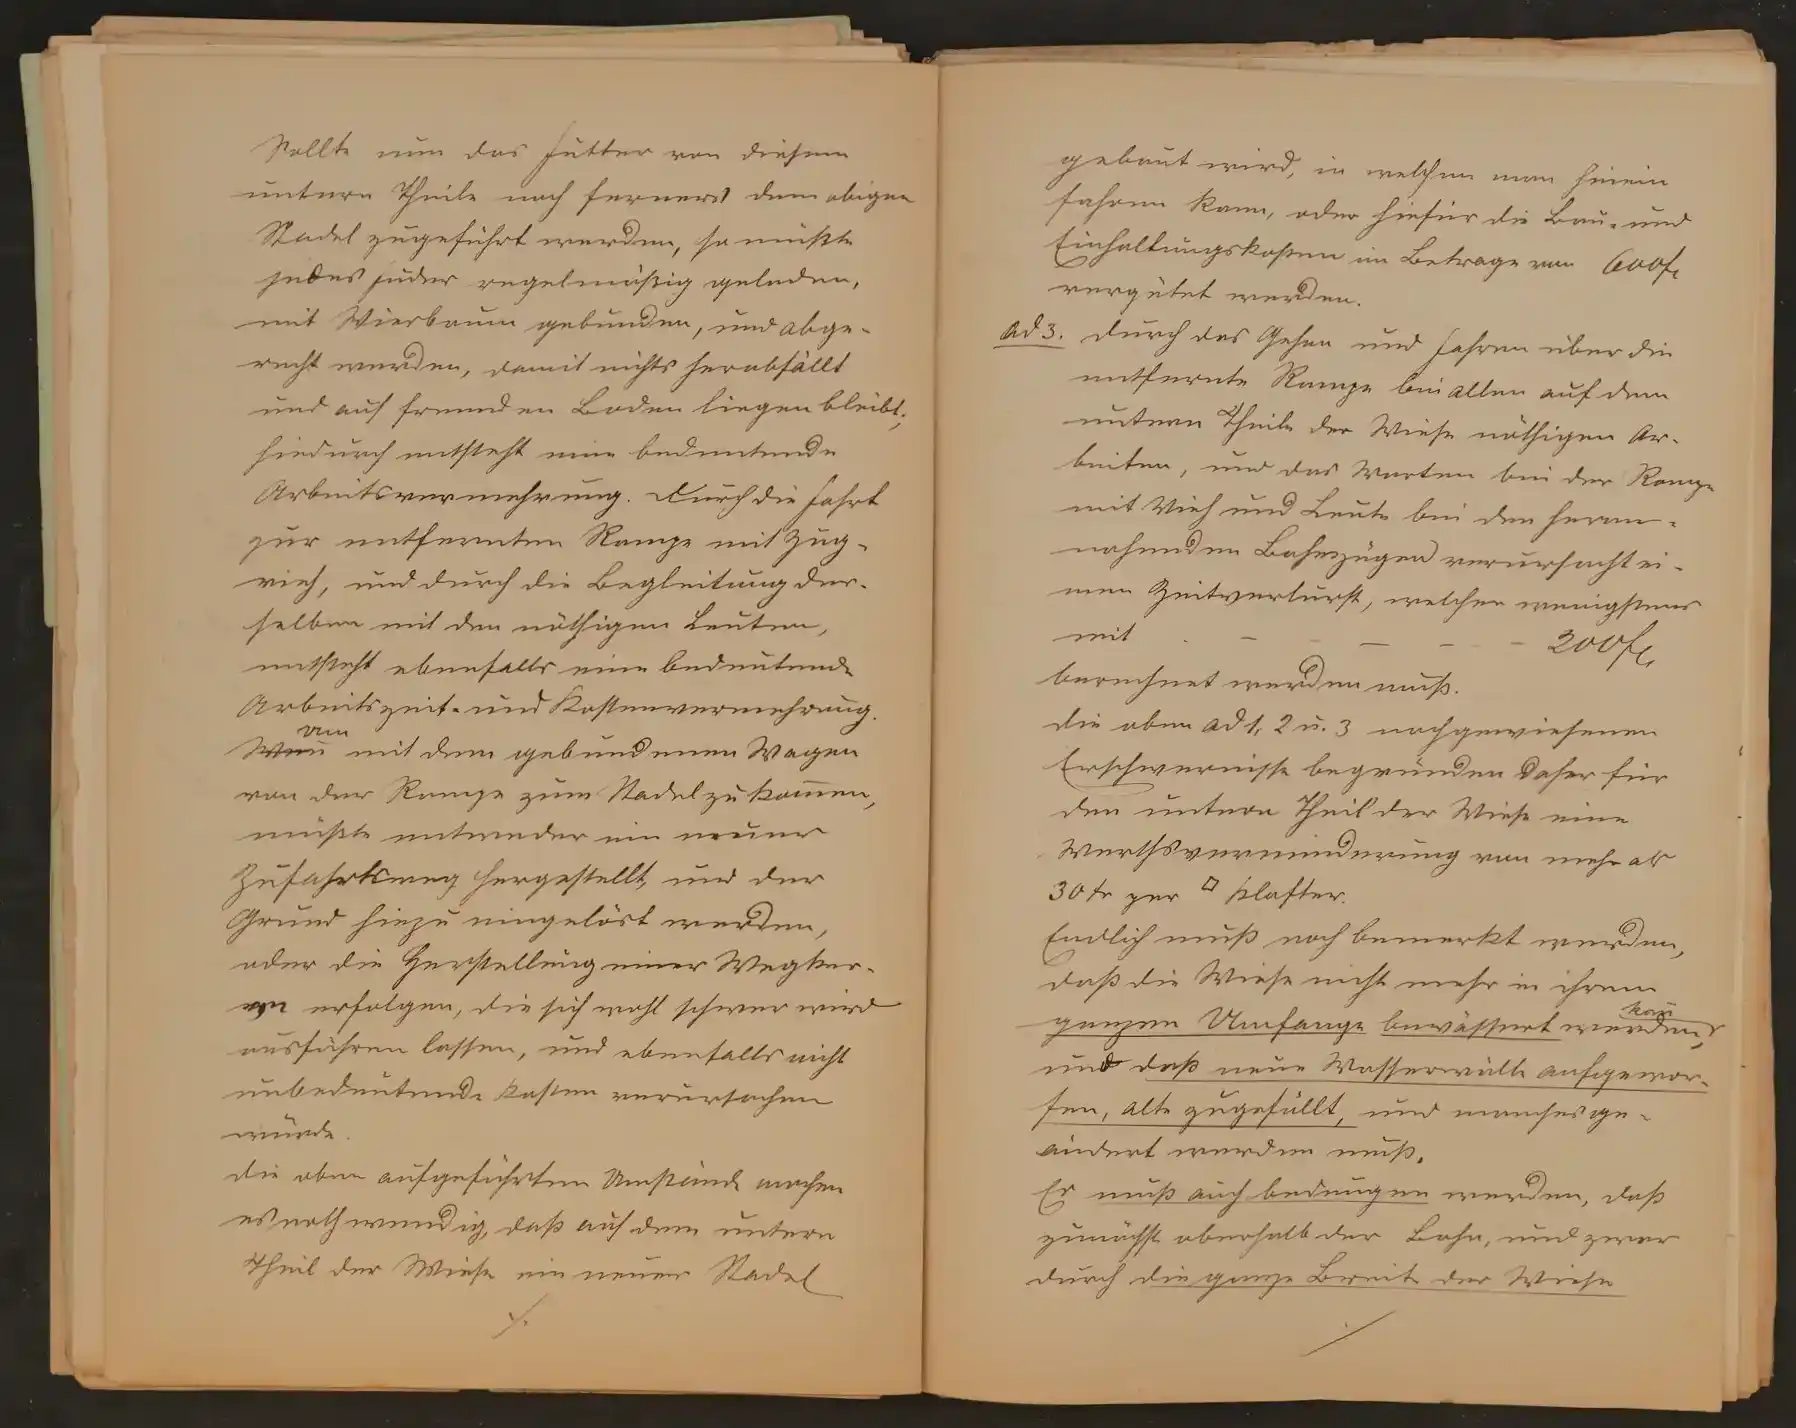 Sollte nun das Futter von diesem
untern Theile noch ferners dem obigen
Stadel zugeführt werden, so müßte
jedes Fuder regelmäßig geladen,
mit Wiesbaum gebunden, und abge-
recht werden, damit nichts herabfällt
und auf fremden Boden liegen bleibt;
hiedurch entsteht eine bedeutende
Arbeitsvermehrung. Durch die Fahrt
zur entfernten Rampe mit Zug-
vieh, und durch die Begleitung der-
selben mit den nöthigen Leuten,
entsteht ebenfalls eine bedeutende
Arbeitszeit- und Kostenvermehrung.
Um mit dem gebundenen Wagen
von der Rampe zum Stadel zu kommen,
müßte entweder ein neuer
Zufahrtsweg hergestellt, und der
Grund hiezu eingelöst werden,
oder die Herstellung einer Wegker-
erfolgen, die sich wohl schwer wird
ausführen lassen, und ebenfalls nicht
unbedeutende Kosten verursachen
würde.
Die oben aufgeführten Umstände machen
es nothwendig, daß auf dem untern
Theil der Wiese ein neuer Stadel
./.
gebaut wird, in welchen man hinein
fahren kann, oder hiefür die Bau- und
Einhaltungskosten im Betrage von 600 fl
vergütet werden.
ad 3. Durch das Gehen und Fahren über die
entfernte Rampe bei allen auf dem
untern Theile der Wiese nöthigen Ar-
beiten, und das Warten bei der Rampe
mit Vieh und Leute bei den heran-
nahenden Bahnzügen verursacht ei-
nen Zeitverlurst, welcher wenigstens
mit - - - - - 200 fl,
berechnet werden muß.
Die oben ad 1, 2 u. 3 nachgewiesenen
Erschwernisse begründen daher für
den untern Theil der Wiese eine
Werthsverminderung von mehr als
30 kr per □ Klafter.
Endlich muß noch bemerkt werden,
daß die Wiese nicht mehr in ihrem
ganzen Umfange bewässert werden kan̄,
und daß neue Wasserwälle aufgewor-
fen, alte zugefüllt, und manches ge-
ändert werden muß.
Es muß auch bedungen werden, daß
zunächst oberhalb der Bahn, und zwar
durch die ganze Breite der Wiese